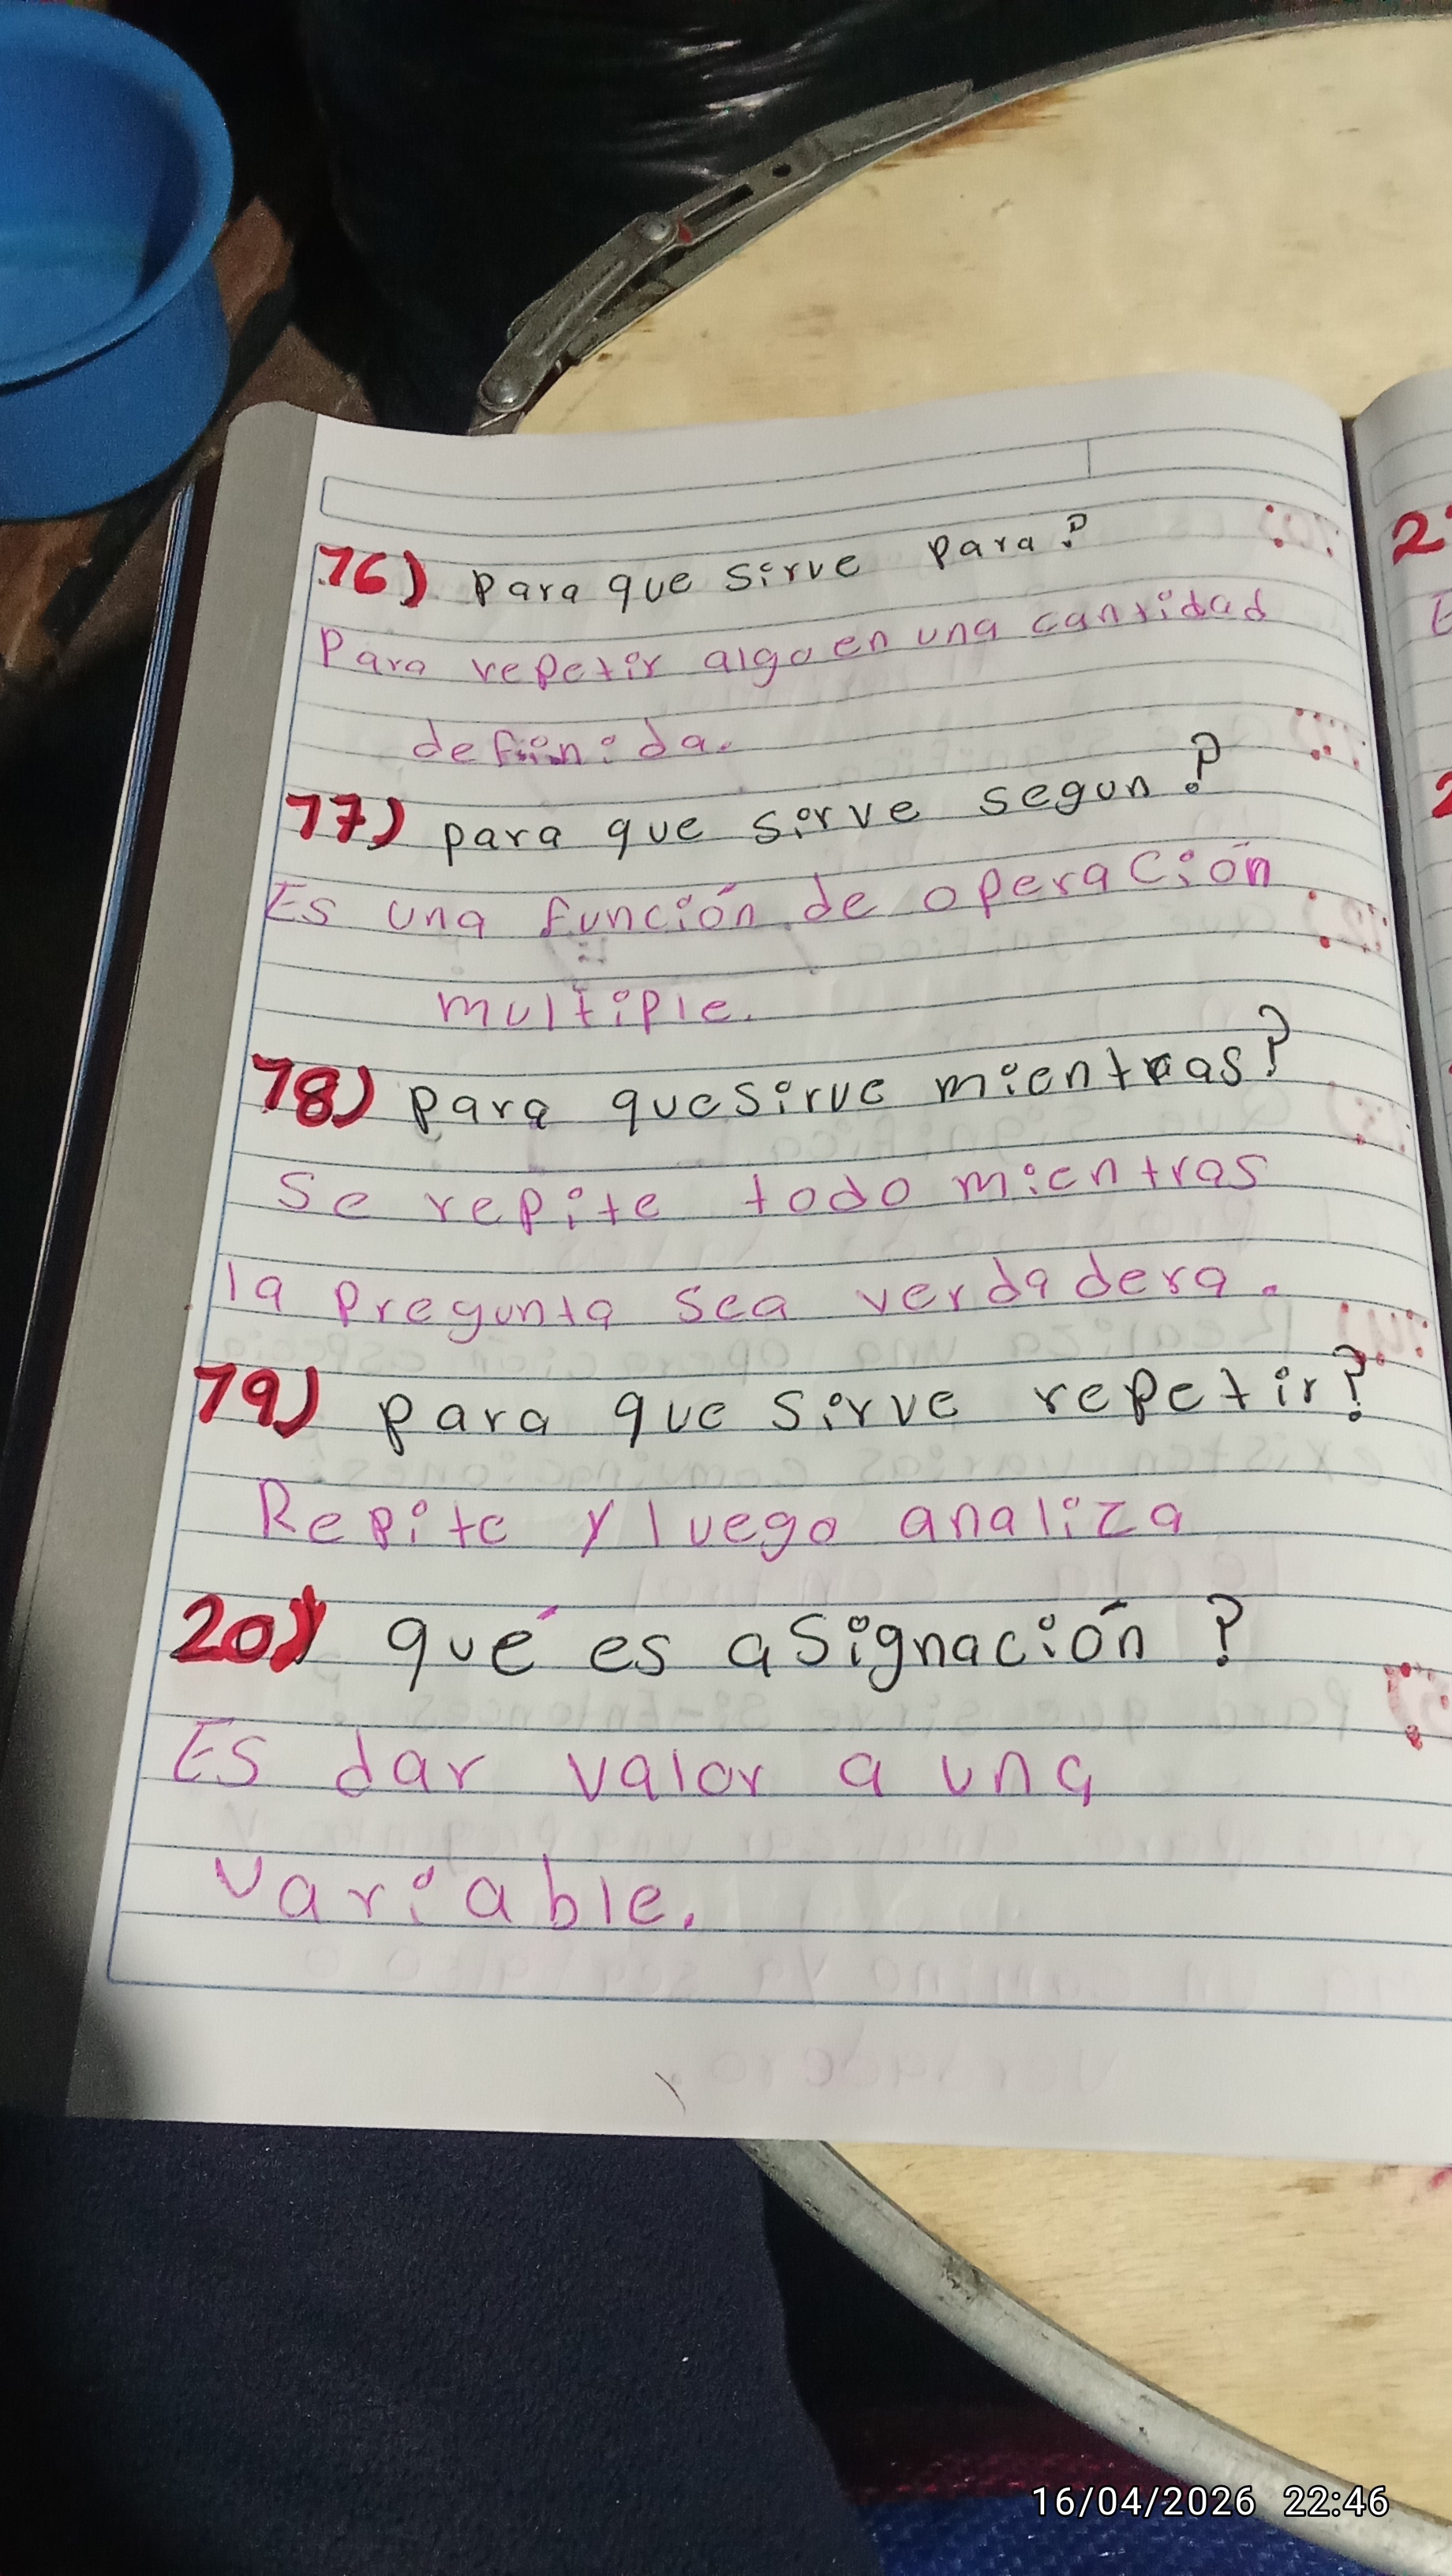 16) Para que sirve para?
Para repetir algo en una cantidad
definida.
17) para que sirve segun?
Es una función de operación
multiple.
18) para que sirve mientras?
Se repite todo mientras
la pregunta sea verdadera.
19) para que sirve repetir?
Repite y luego analiza
20) qué es asignación?
Es dar valor a una
variable.
16/04/2026 22:46